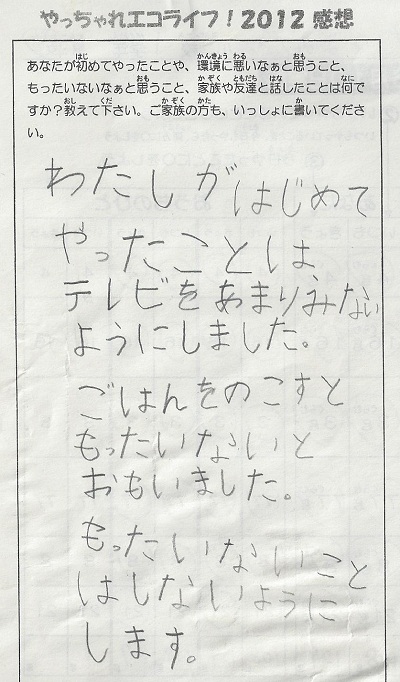 やっちゃれエコライフ！2012 感想
あなたが初めてやったことや、環境に悪いなぁと思うこと、
もったいないなぁと思うこと、家族や友達と話したことは何で
すか？教えて下さい。ご家族の方も、いっしょに書いてくださ
い。
わたしがはじめて
やったことは
テレビをあまりみない
ようにしました。
ごはんをのこすと
もったいないと
おもいました。
もったいないこと
はしないように
します。